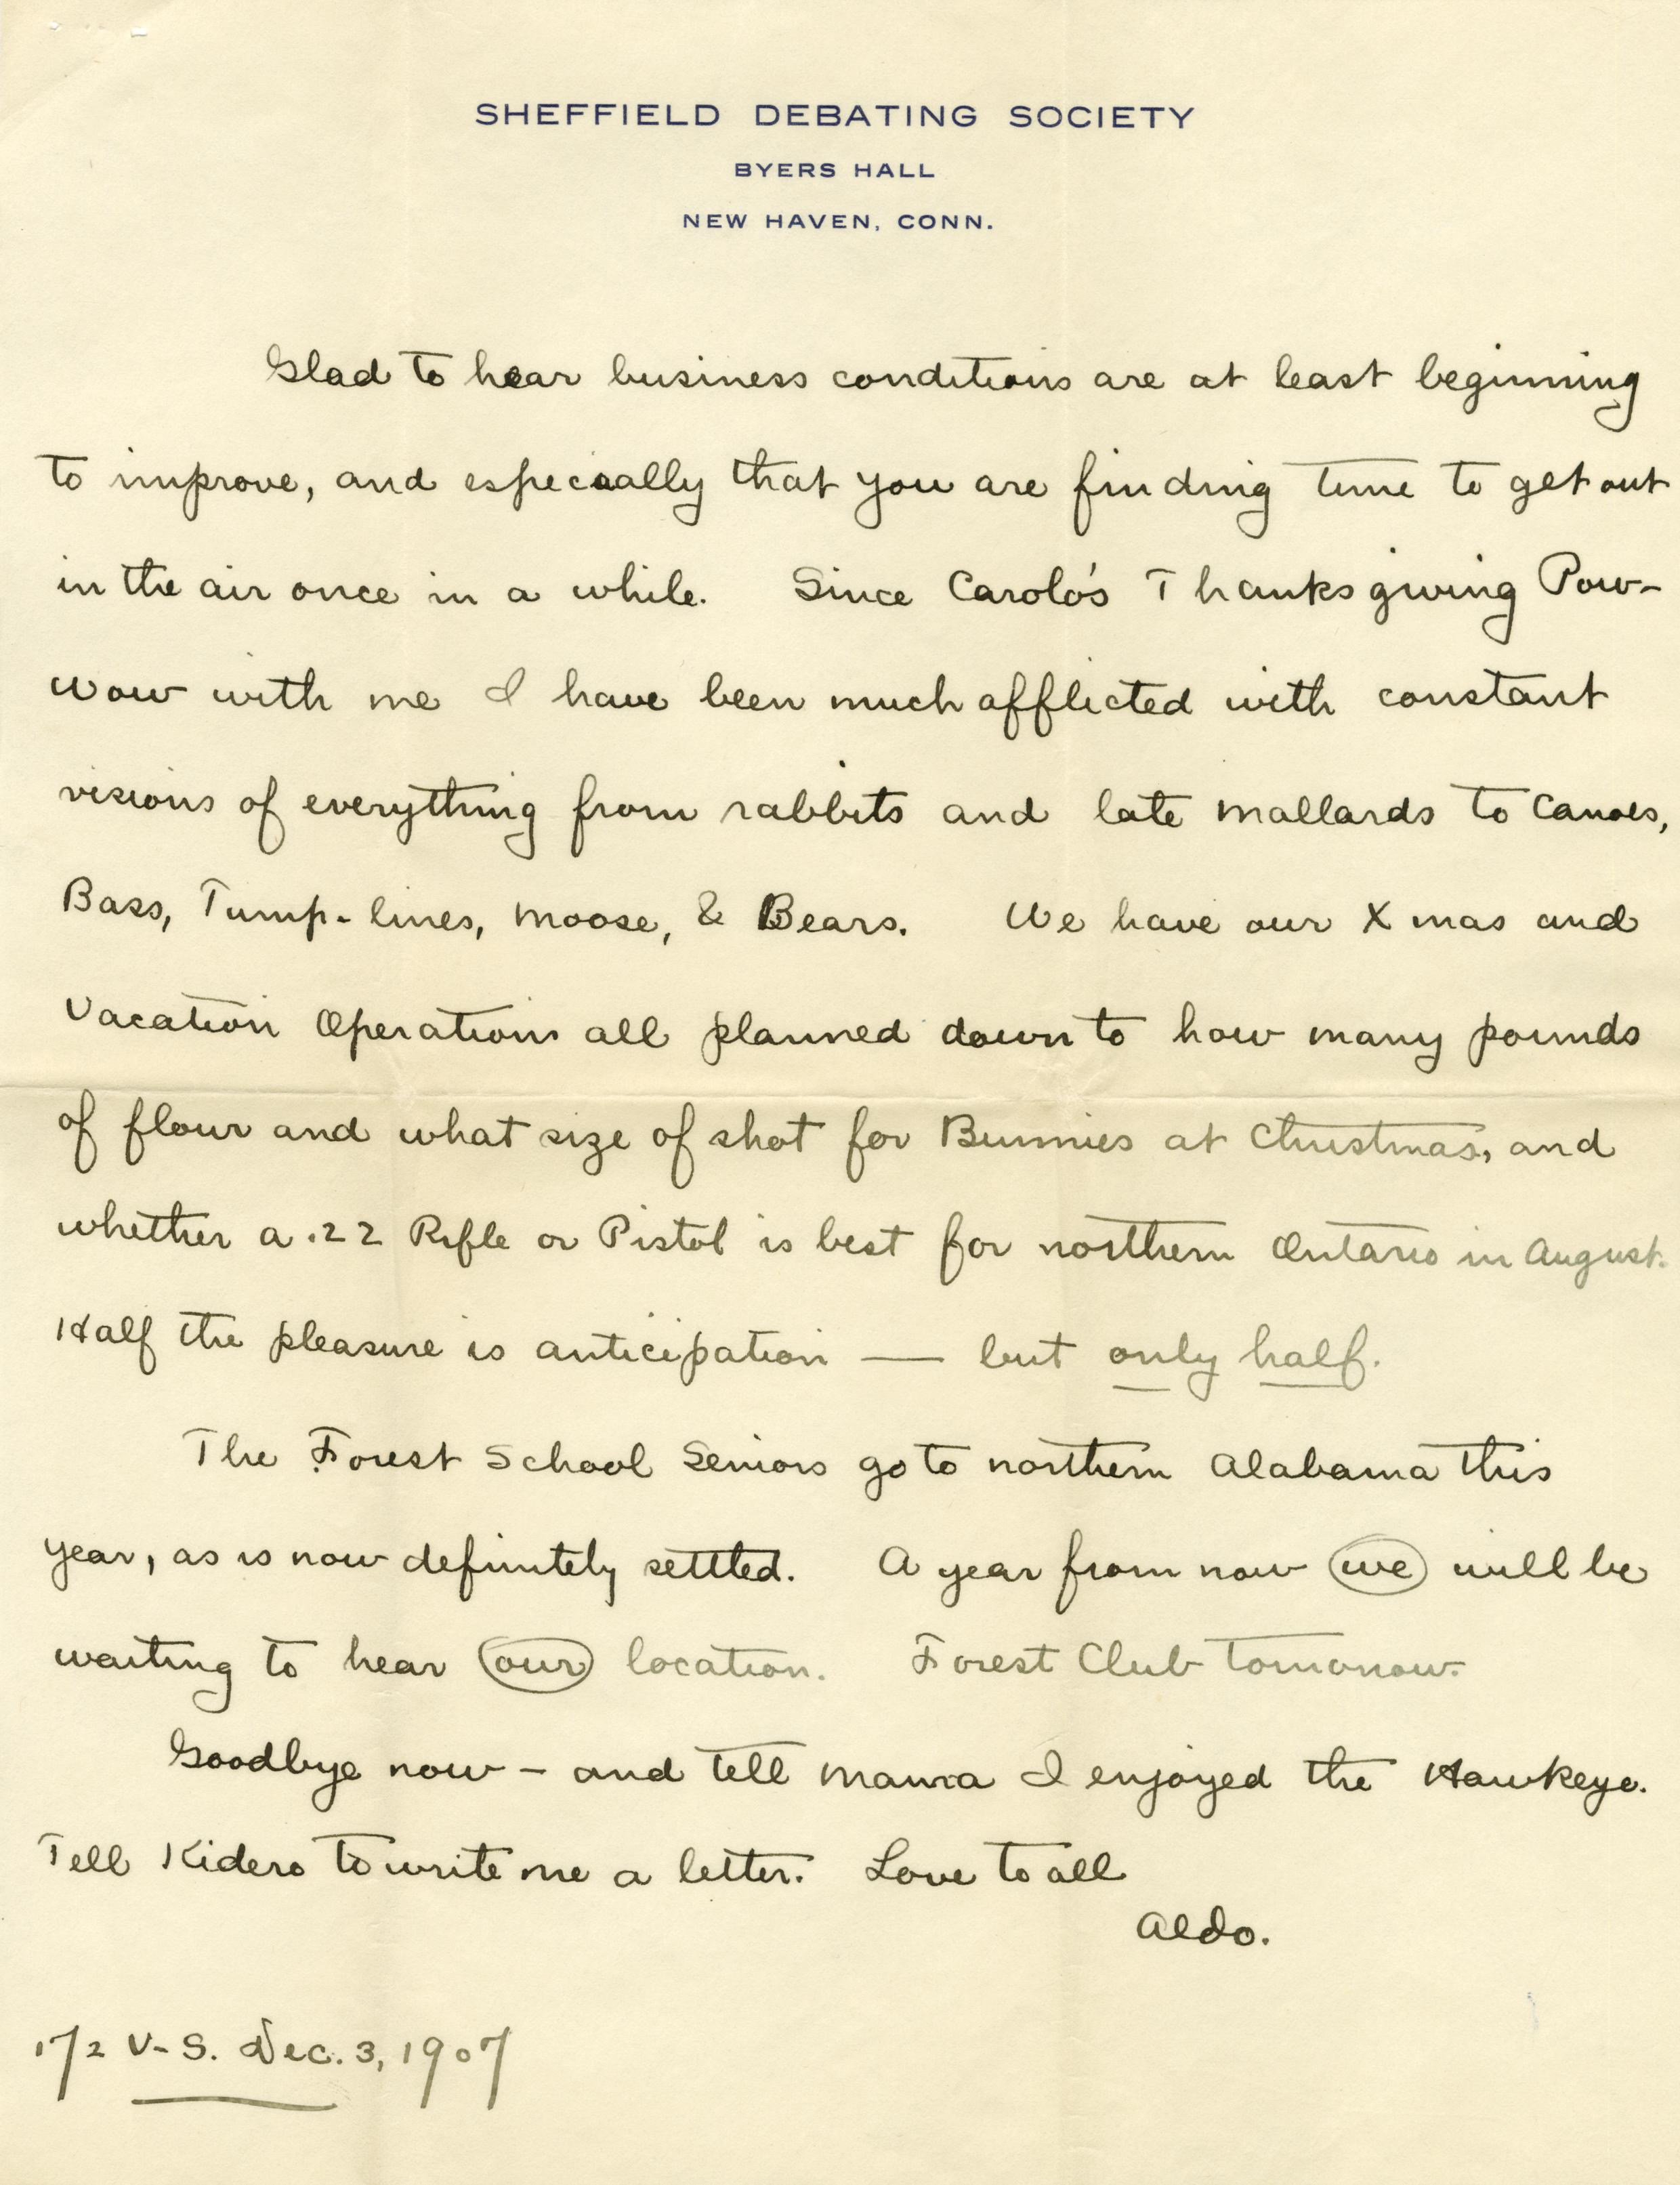 SHEFFIELD DEBATING SOCIETY
BYERS HALL
NEW HAVEN, CONN.
Glad to hear business conditions are at least beginning
to improve, and especially that you are finding time to get out
in the air once in a while. Since Carolo's Thanksgiving Pow-
wow with me I have been much afflicted with constant
visions of everything from rabbits and late mallards to Canoes,
Bass, Tump-lines, Moose, & Bears. We have our Xmas and
Vacation Operations all planned down to how many pounds
of flour and what size of shot for Bunnies at Christmas, and
whether a .22 Rifle or Pistol is best for northern Ontario in August.
Half the pleasure is anticipation — but only half.
The Forest School Seniors go to northern Alabama this
year, as is now definitely settled. A year from now we will be
waiting to hear our location. Forest Club tomorrow.
Goodbye now - and tell Mama I enjoyed the Hawkeye.
Tell Kidero to write me a letter. Love to all
Aldo.
172 V-S. Dec. 3, 1907